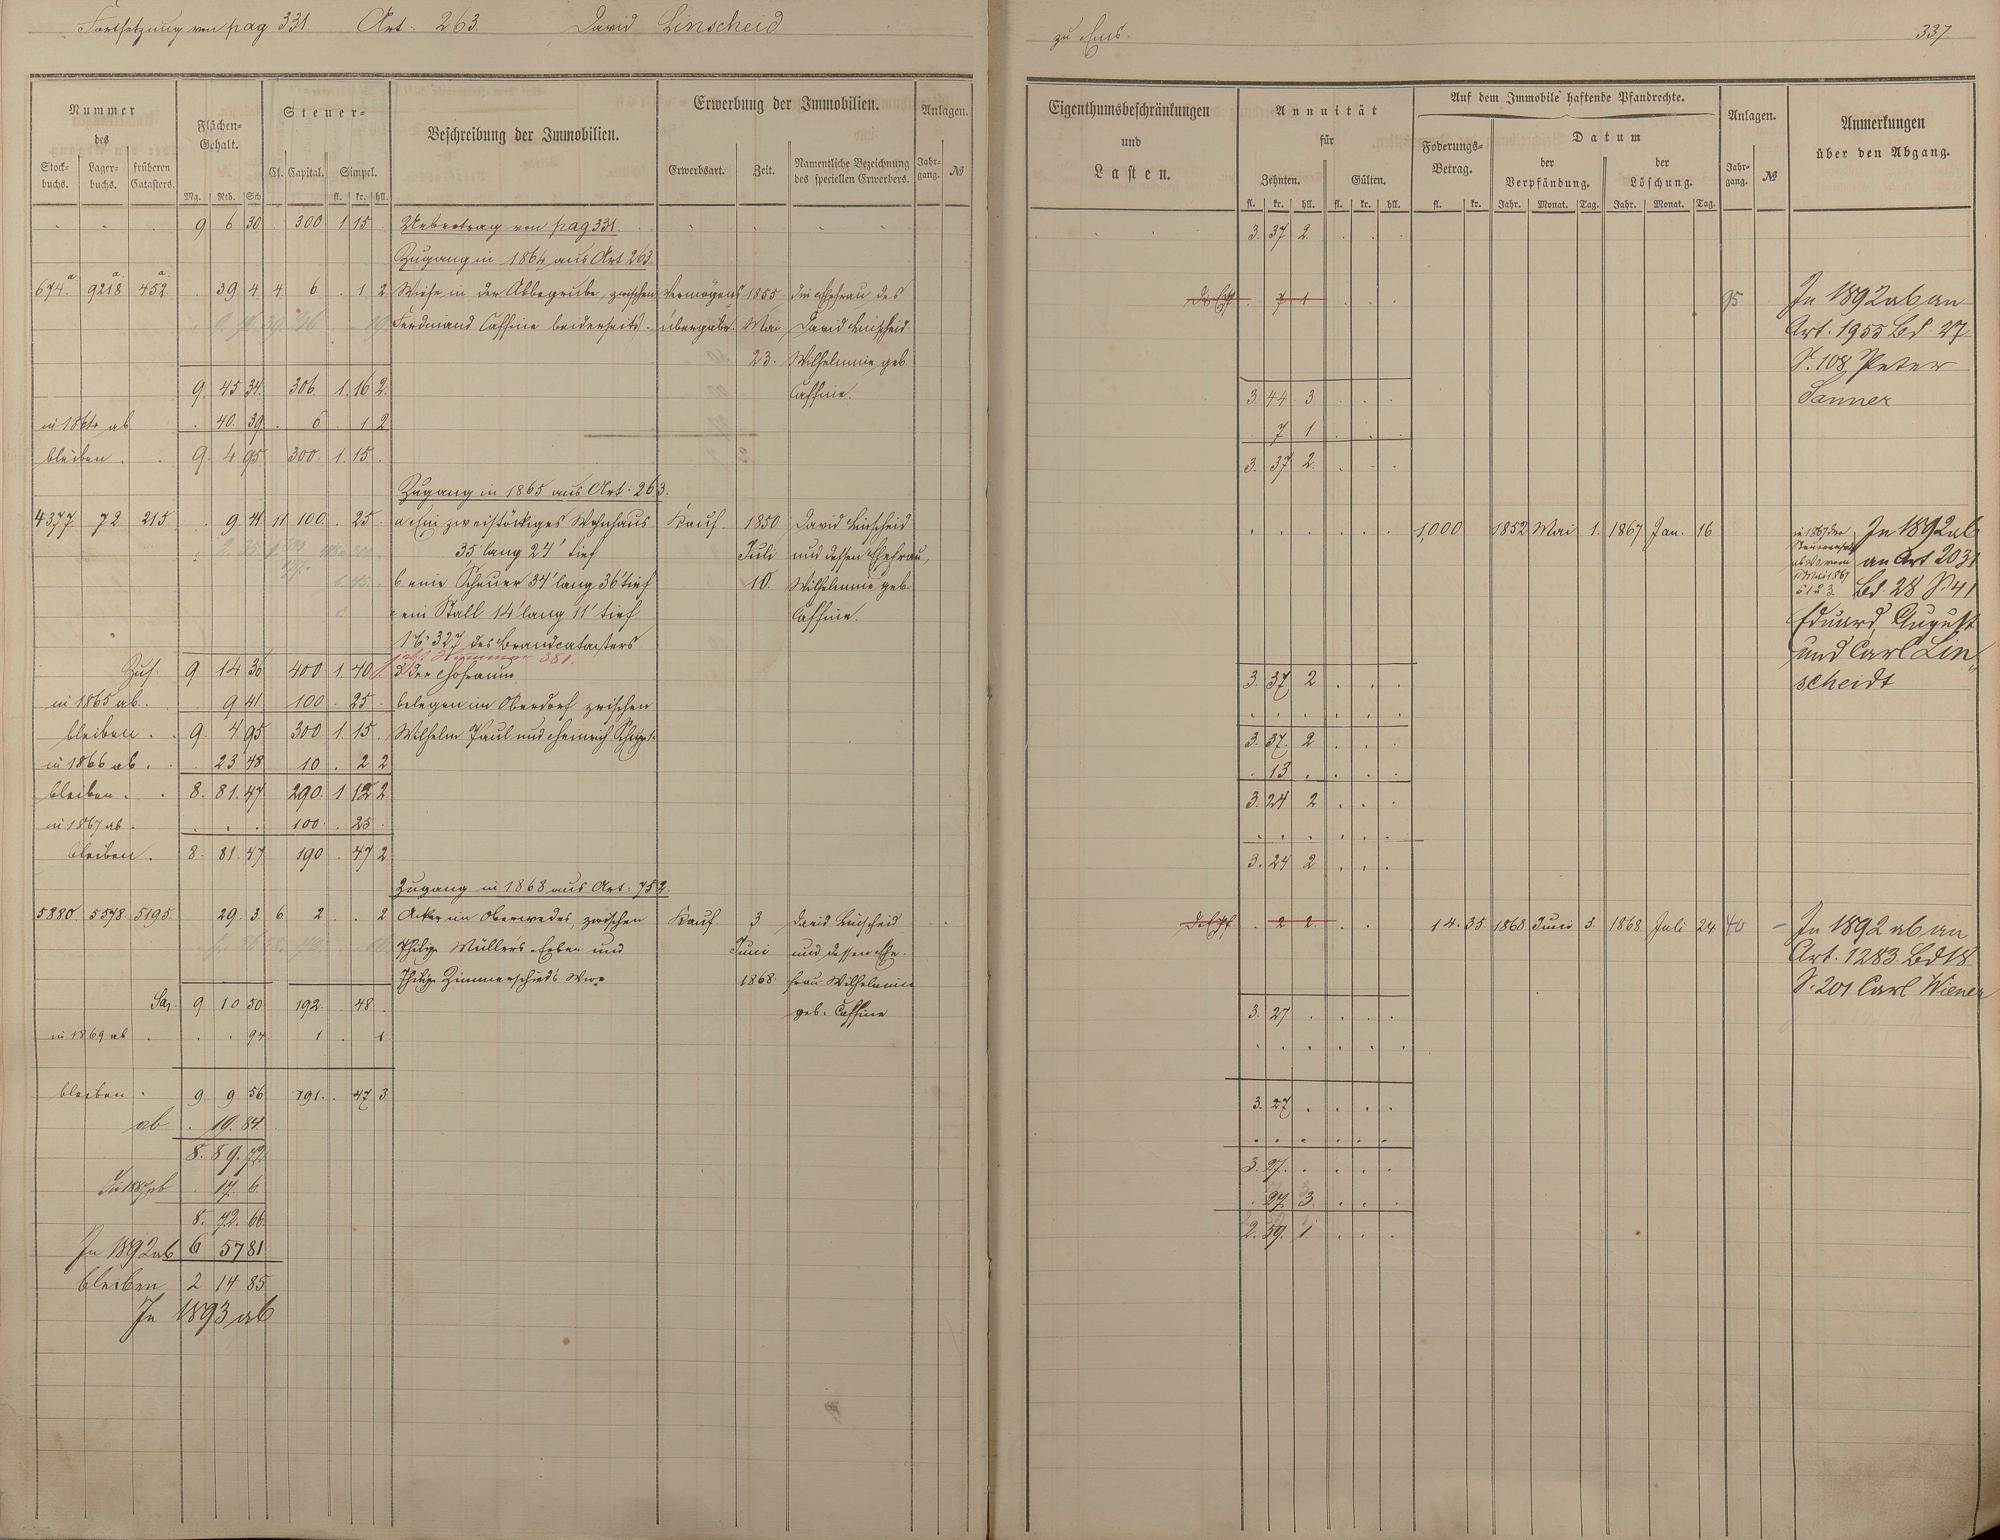 Fortsetzung von pag 331. Art: 263. David Linscheid
Nummer
des
Stock-
buchs.
Lager-
buchs.
früheren
Catasters.
Flächen-
Gehalt.
Mg. Rth. Sch.
Steuer-
Cl. Capital. Simpel.
fl. kr. hll.
Beschreibung der Immobilien.
Erwerbung der Immobilien.
Erwerbsart. Zeit. Namentliche Bezeichnung
des speciellen Erwerbers.
Anlagen.
Jahr-
gang. №
9 6 30. 300 1 15. Uebertrag von pag 331.
Zugang in 1864 aus Art 263.
674.a 9218a 452a . 39 4 4 6 . 1 2 Wiese in der Abbegrube, zwischen Vermögens 1855 die Ehefrau des
Ferdinand Caffine beiderseits. übergabe. Mai David Linscheid
23. Wilhelmine geb
9. 45 34. 306 1. 16 2. Caffine.
in 1864 ab . 40. 39 . 6 . 1 2
bleiben . . 9. 4 95 300. 1. 15.
Zugang in 1865 aus Art: 263.
4377. 72 215 . 9 41 11 100 . 25 . a Ein zweistöckiges Wohnhaus Kauf 1850 David Linscheid
35' lang 24' tief Juli und dessen Ehefrau,
b eine Scheuer 34' lang 36' tief 10. Wilhelmine geb
c ein Stall 14' lang 11' tief Caffine.
№ 327 des Brandcatasters
jetzt Nummer 381.
Zus. 9 14 36 400 1. 40. d der Hofraum
in 1865 ab. . 9 41 100 . 25 . belegen im Oberdorf zwischen
bleiben . . 9. 4 95 300 1 15 . Wilhelm Paul und Heinrich
in 1866 ab . . 23 48 10 . 2 2
bleiben . . 8. 81. 47 290. 1 12 2
in 1867 ab . . . . 100. . 25 .
bleiben . 8. 81. 47 190 . 47 2
Zugang in 1868 aus Art: 752.
5880. 5378. 5195. 29. 3. 6 2 . . 2 Acker im Oberwedes, zwischen Kauf 3 David Linscheid
Philipp Müller's Erben und Juni und dessen Ehe-
Philipp Zimmerschied's Wwe 1868. frau Wilhelmine
Sa. 9 10 50 192. . 48 . geb. Caffine
in 1869 ab . . . 94 1 . . 1
bleiben . 9 9 56 191. . 47 3
ab . 19. 84
8. 89. 72
In 1887 ab . 17. 6.
8. 72. 66.
In 1892 ab 6 57 81
bleiben 2 14 85
In 1893 ab
zu Ems. 337.
Eigenthumsbeschränkungen
und
Lasten.
Annuität
für
Zehnten. Gülten.
fl. kr. hll. fl. kr. hll.
Auf dem Immobile haftende Pfandrechte.
Foderungs-
Betrag.
fl. kr.
Datum
der
Verpfändung.
der
Löschung.
Jahr. Monat. Tag. Jahr. Monat. Tag.
Anlagen.
Jahr-
gang. №
Anmerkungen
über den Abgang.
3. 37 2.
7 1 95 In 1892 ab an
Art. 1955 Bd 27
S. 108 Peter
3. 44. 3 Sanner
7 1
3. 37 2.
1,000 1852 Mai 1. 1867 Jan. 16 in 1867 der In 1892 ab
an Art 2031
Bd. 28 S. 41
Eduard, August
und Carl Lin-
3. 37 2 scheidt
3. 37. 2
. 13 .
3. 24 2
3. 24 2
2 2. 14. 35. 1868 Juni 3. 1868 Juli 24 40 In 1892 ab an
Art. 1283 Bd 18
S. 201 Carl Wiener
3. 27
3. 27
3. 27.
. 27. 3.
2. 59. 1.